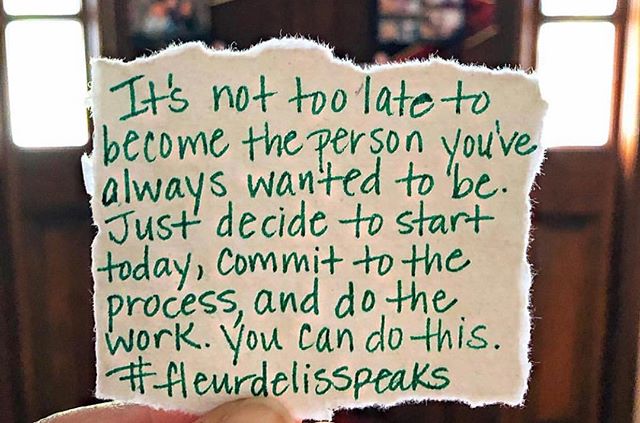 It's not too late to
become the person you've
always wanted to be.
Just decide to start
today, commit to the
process, and do the
work. You can do this.
#fleurdelisspeaks